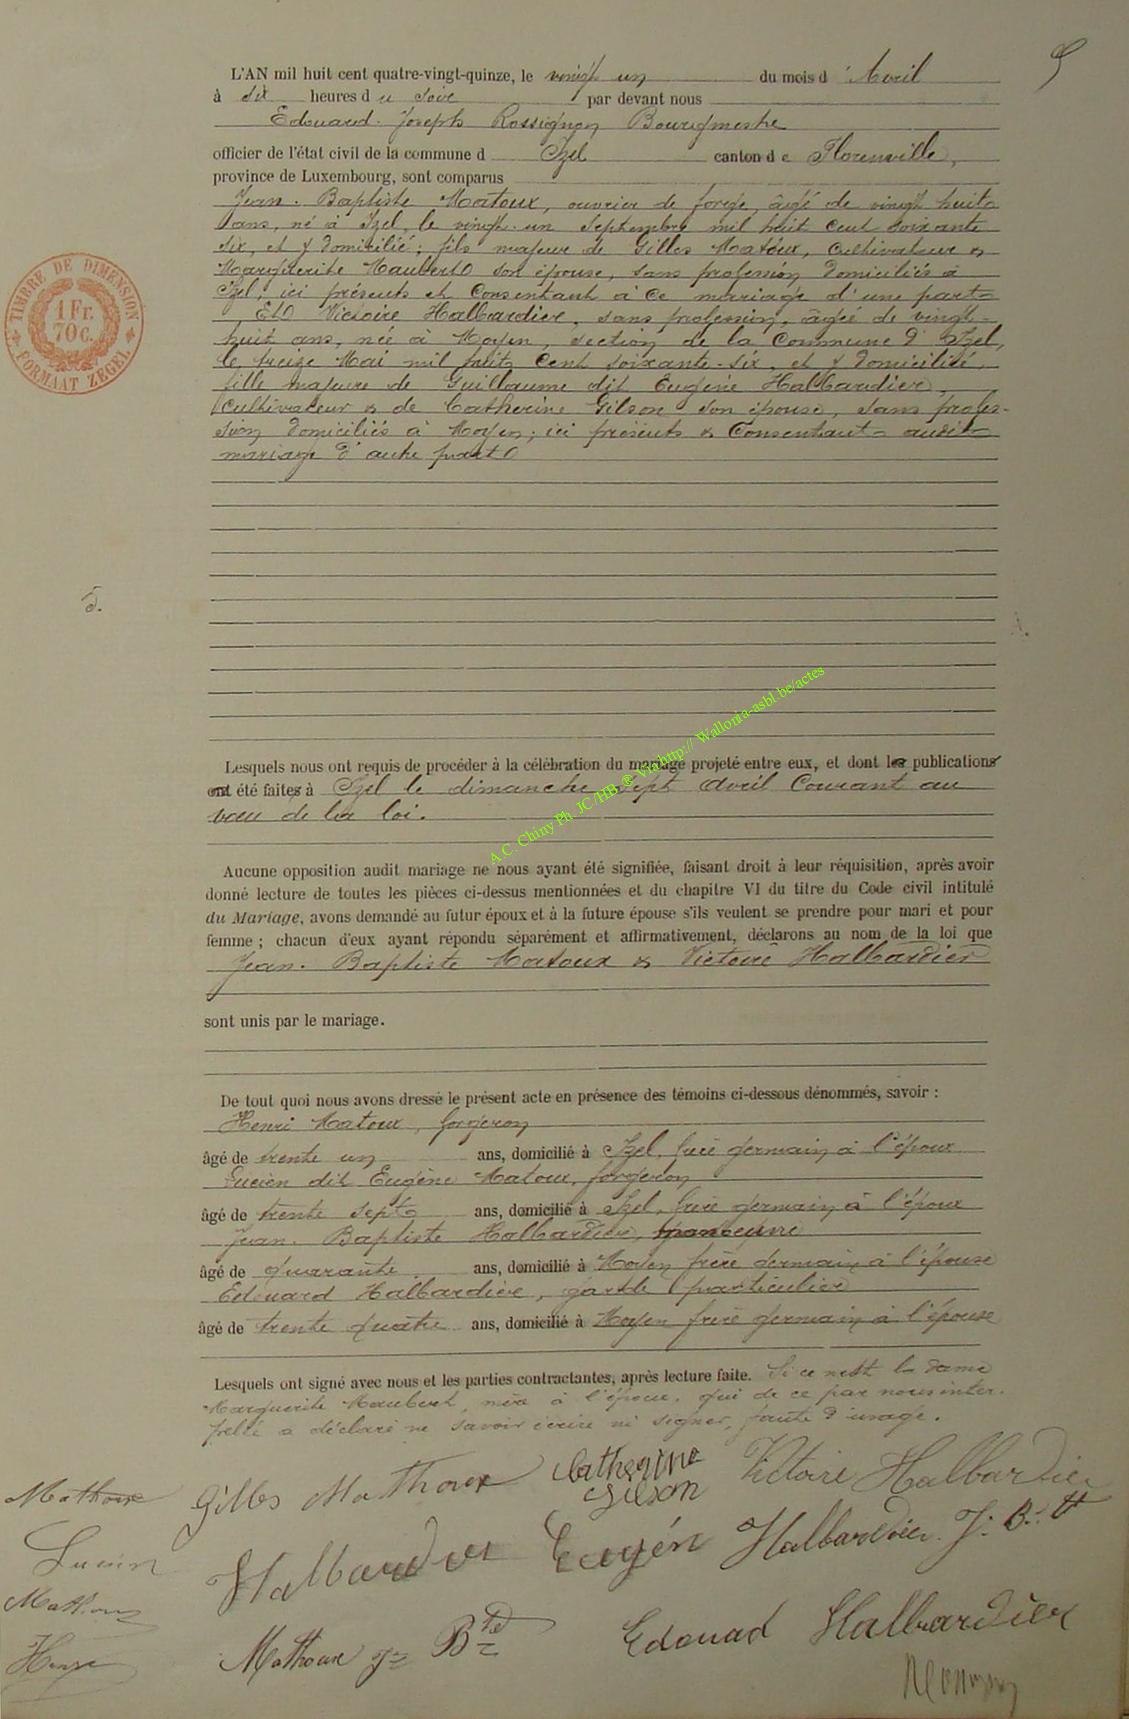 9
L'AN mil huit cent quatre-vingt-quinze, le vingt un du mois d'Avril
à six heures du soir par devant nous
Edouard Joseph Rossignon Bourgmestre
officier de l'état civil de la commune d Izel canton de Florenville,
province de Luxembourg, sont comparus
Jean-Baptiste Matoux, ouvrier de forge, âgé de vingt huit
ans, né à Izel, le vingt-un septembre mil huit cent soixante
six, et y domicilié; fils majeur de Gilles Matoux, cultivateur &
Marguerite Maubert son épouse, sans profession domiciliés à
Izel; ici présents et consentant à ce mariage d'une part
Et Victoire Halbardier, sans profession, âgée de vingt-
huit ans, née à Moyen, section de la Commune d'Izel,
le treize Mai mil huit cent soixante-six, et y domiciliée,
fille majeure de Guillaume dit Eugène Halbardier,
cultivateur & de Catherine Gilson son épouse, sans profes-
sion domiciliés à Moyen; ici présents & Consentant audit
mariage d'autre part
TIMBRE DE DIMENSION
1 Fr.
70 c.
FORMAAT ZEGEL
5.
Lesquels nous ont requis de procéder à la célébration du mariage projeté entre eux, et dont les publications
ont été faites à Izel le dimanche sept avril Courant au
vœu de la loi.
A.C. Chiny Ph. JC/HB ® Via http:// Wallonia-asbl.be/actes
Aucune opposition audit mariage ne nous ayant été signifiée, faisant droit à leur réquisition, après avoir
donné lecture de toutes les pièces ci-dessus mentionnées et du chapitre VI du titre du Code civil intitulé
du Mariage, avons demandé au futur époux et à la future épouse s'ils veulent se prendre pour mari et pour
femme ; chacun d'eux ayant répondu séparément et affirmativement, déclarons au nom de la loi que
Jean-Baptiste Matoux & Victoire Halbardier
sont unis par le mariage.
De tout quoi nous avons dressé le présent acte en présence des témoins ci-dessous dénommés, savoir :
Henri Matoux, forgeron
âgé de trente un ans, domicilié à Izel, frère germain à l'époux
Lucien dit Eugène Matoux, forgeron
âgé de trente sept ans, domicilié à Izel, frère germain à l'époux
Jean-Baptiste Halbardier, manœuvre
âgé de quarante ans, domicilié à Moyen frère germain à l'épouse
Edouard Halbardier, garde particulier
âgé de trente quatre ans, domicilié à Moyen frère germain à l'épouse
Lesquels ont signé avec nous et les parties contractantes, après lecture faite. Si ce n'est la dame
Marguerite Maubert, mère à l'époux, qui de ce par nous inter-
pellé a déclaré ne savoir écrire ni signer, faute d'usage.
Mathoux Gilles Mathoux Catherine Gilson Victoire Halbardier
Lucien Halbardier Eugén Halbardier J. B.tt
Mathoux
Henri Mathoux J B.te Edouad Halbardier